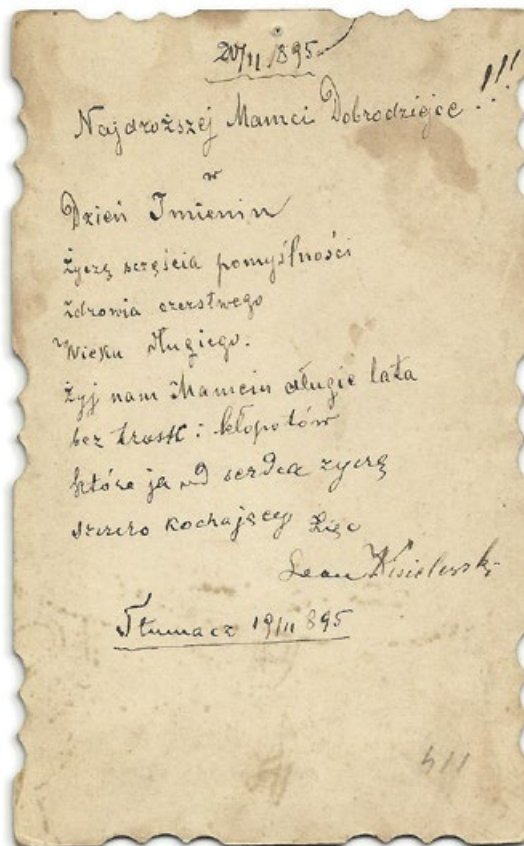 20/11 895
Najdroższej Mamci Dobrodziejce!!!
w
Dzień Imienin
życzę sczęścia pomyślności
zdrowia czerstwego
Wieku długiego.
żyj nam Mamciu długie lata
bez trosk i kłopotów
które ja od serdca zyczę
szczero kochający Zięc
Leon Kisielewski
Tłumacz 19/11 895